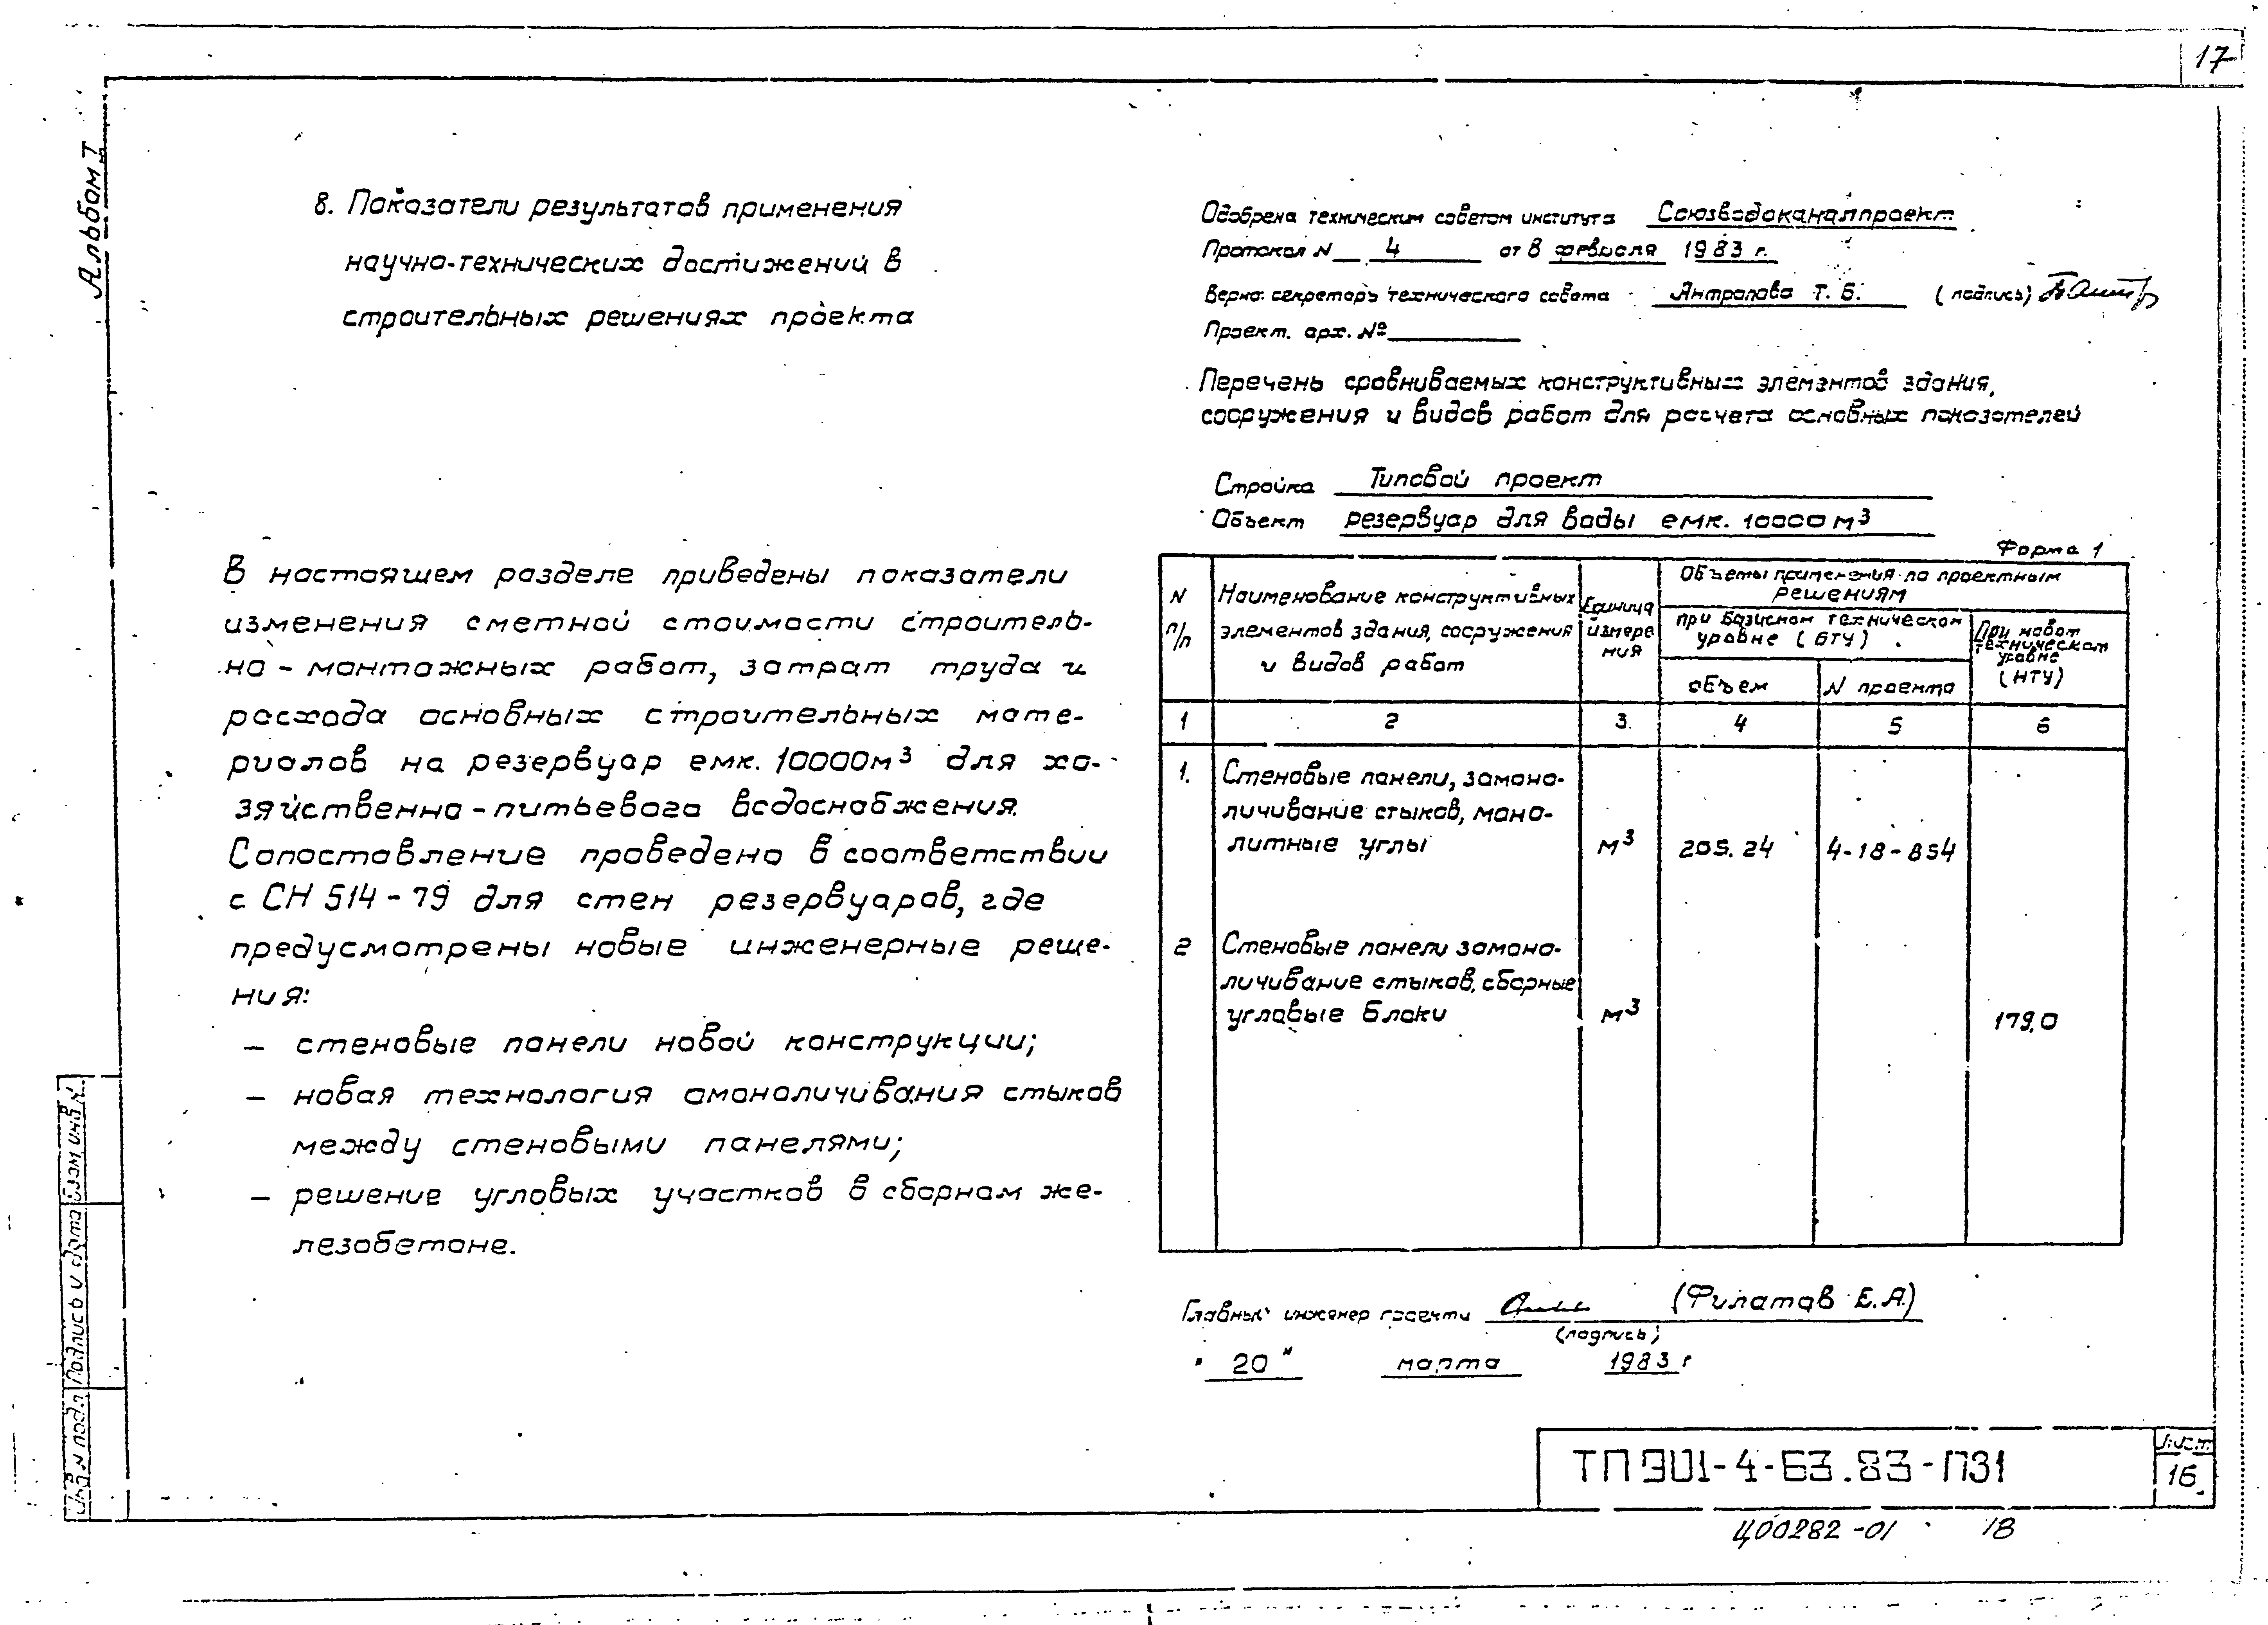 17
Альбом I
8. Показатели результатов применения
научно-технических достижений в
строительных решениях проекта
В настоящем разделе приведены показатели
изменения сметной стоимости строитель-
но - монтажных работ, затрат труда и
расхода основных строительных мате-
риалов на резервуар емк. 10000м³ для хо-
зяйственно-питьевого водоснабжения.
Сопоставление проведено в соответствии
с СН 514-79 для стен резервуаров, где
предусмотрены новые инженерные реше-
ния:
– стеновые панели новой конструкции;
– новая технология омоноличивания стыков
между стеновыми панелями;
– решение угловых участков в сборном же-
лезобетоне.
Одобрена техническим советом института Союзводоканалпроект
Протокол N 4 от 8 февраля 1983 г.
Верно: секретарь технического совета Антропова Т. Б. (подпись)
Проект. арх. №
Перечень сравниваемых конструктивных элементов здания,
сооружения и видов работ для расчета основных показателей
Стройка Типовой проект
Объект резервуар для воды емк. 10000 м³
Форма 1
N п/п
Наименование конструктивных
элементов здания, сооружения
и видов работ
Единица
измере
ния
Объемы применения по проектным
решениям
при базисном техническом
уровне (БТУ)
При новом
техническом
уровне
(НТУ)
объем
N проекта
1 2 3. 4 5 6
1. Стеновые панели, замоно-
личивание стыков, моно-
литные углы м³ 205.24 4-18-854
2 Стеновые панели замоно-
личивание стыков, сборные
угловые блоки м³ 179,0
Главный инженер проекта (Филатов Е.А.)
(подпись)
" 20 " марта 1983 г
Инв N подл. Подпись и дата Взам инв N
ТП 901-4-63.83-ПЗ1
Лист
16
Ц00282-01 18